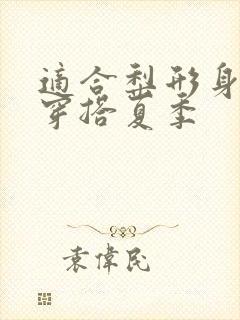 適合梨形身
穿搭夏季
袁偉民